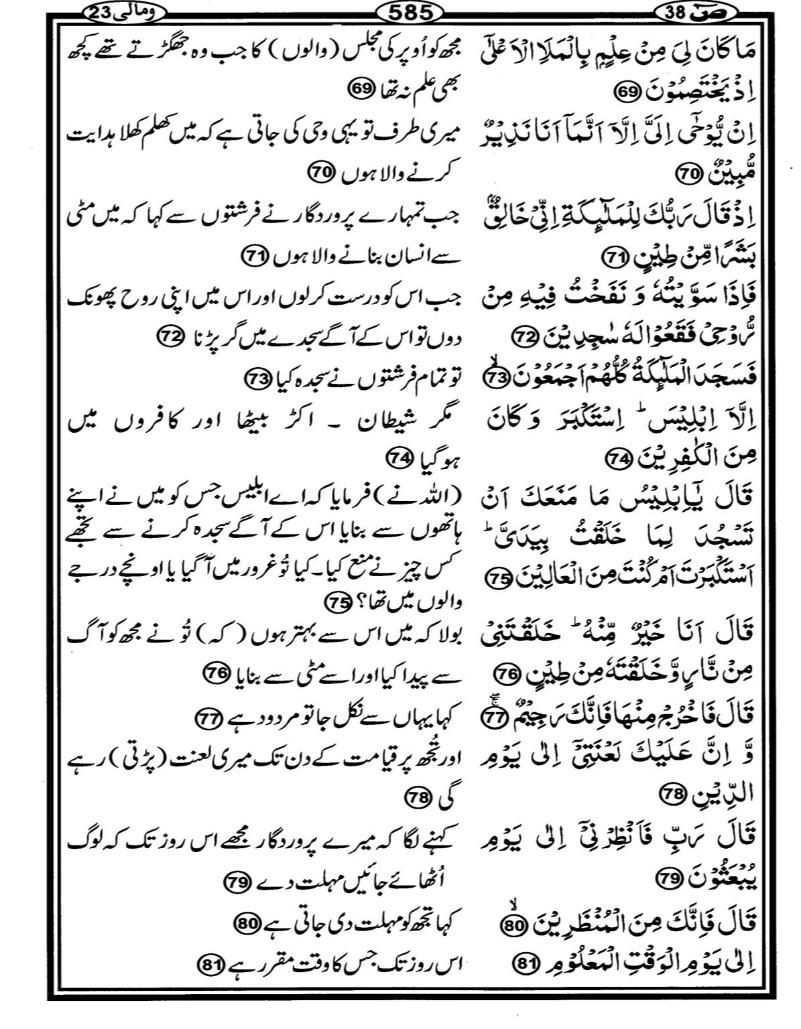 صٓ 38
585
ومالی 23
مَا كَانَ لِیَ مِنْ عِلْمٍۭ بِالْمَلَاِ الْاَعْلٰۤی
اِذْ یَخْتَصِمُوْنَ 69
اِنْ یُّوْحٰۤی اِلَیَّ اِلَّاۤ اَنَّمَاۤ اَنَا نَذِیْرٌ
مُّبِیْنٌ 70
اِذْ قَالَ رَبُّكَ لِلْمَلٰٓىِٕكَةِ اِنِّیْ خَالِقٌۢ
بَشَرًا مِّنْ طِیْنٍ 71
فَاِذَا سَوَّیْتُهٗ وَ نَفَخْتُ فِیْهِ مِنْ
رُّوْحِیْ فَقَعُوْا لَهٗ سٰجِدِیْنَ 72
فَسَجَدَ الْمَلٰٓىِٕكَةُ كُلُّهُمْ اَجْمَعُوْنَ 73ۙ
اِلَّاۤ اِبْلِیْسَ ؕ اِسْتَكْبَرَ وَ كَانَ
مِنَ الْكٰفِرِیْنَ 74
قَالَ یٰۤاِبْلِیْسُ مَا مَنَعَكَ اَنْ
تَسْجُدَ لِمَا خَلَقْتُ بِیَدَیَّ ؕ
اَسْتَكْبَرْتَ اَمْ كُنْتَ مِنَ الْعَالِیْنَ 75
قَالَ اَنَا خَیْرٌ مِّنْهُ ؕ خَلَقْتَنِیْ
مِنْ نَّارٍ وَّ خَلَقْتَهٗ مِنْ طِیْنٍ 76
قَالَ فَاخْرُجْ مِنْهَا فَاِنَّكَ رَجِیْمٌ 77ۚۖ
وَّ اِنَّ عَلَیْكَ لَعْنَتِیْۤ اِلٰی یَوْمِ
الدِّیْنِ 78
قَالَ رَبِّ فَاَنْظِرْنِیْۤ اِلٰی یَوْمِ
یُبْعَثُوْنَ 79
قَالَ فَاِنَّكَ مِنَ الْمُنْظَرِیْنَ 80ۙ
اِلٰی یَوْمِ الْوَقْتِ الْمَعْلُوْمِ 81
مجھ کو اُوپر کی مجلس (والوں) کا جب وہ جھگڑتے تھے کچھ
بھی علم نہ تھا 69
میری طرف تو یہی وحی کی جاتی ہے کہ میں کھلم کھلا ہدایت
کرنے والا ہوں 70
جب تمہارے پروردگار نے فرشتوں سے کہا کہ میں مٹی
سے انسان بنانے والا ہوں 71
جب اس کو درست کرلوں اور اس میں اپنی روح پھونک
دوں تو اس کے آگے سجدے میں گر پڑنا 72
تو تمام فرشتوں نے سجدہ کیا 73
مگر شیطان ۔ اکڑ بیٹھا اور کافروں میں
ہوگیا 74
(اللہ نے) فرمایا کہ اے ابلیس جس کو میں نے اپنے
ہاتھوں سے بنایا اس کے آگے سجدہ کرنے سے تجھے
کس چیز نے منع کیا۔ کیا تُو غرور میں آگیا یا اونچے درجے
والوں میں تھا؟ 75
بولا کہ میں اس سے بہتر ہوں (کہ) تُو نے مجھ کو آگ
سے پیدا کیا اور اسے مٹی سے بنایا 76
کہا یہاں سے نکل جا تو مردود ہے 77
اور تُجھ پر قیامت کے دن تک میری لعنت (پڑتی) رہے
گی 78
کہنے لگا کہ میرے پروردگار مجھے اس روز تک کہ لوگ
اُٹھائے جائیں مہلت دے 79
کہا تجھ کو مہلت دی جاتی ہے 80
اس روز تک جس کا وقت مقرر ہے 81